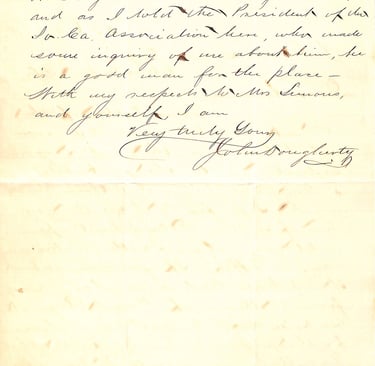 and as I told the President of the
So. Ca. Association here, who made
some inquiry of me about him, he
is a good man for the place –
With my respects to Mrs Simons,
and yourself I am
Very truly Yours
John Dougherty